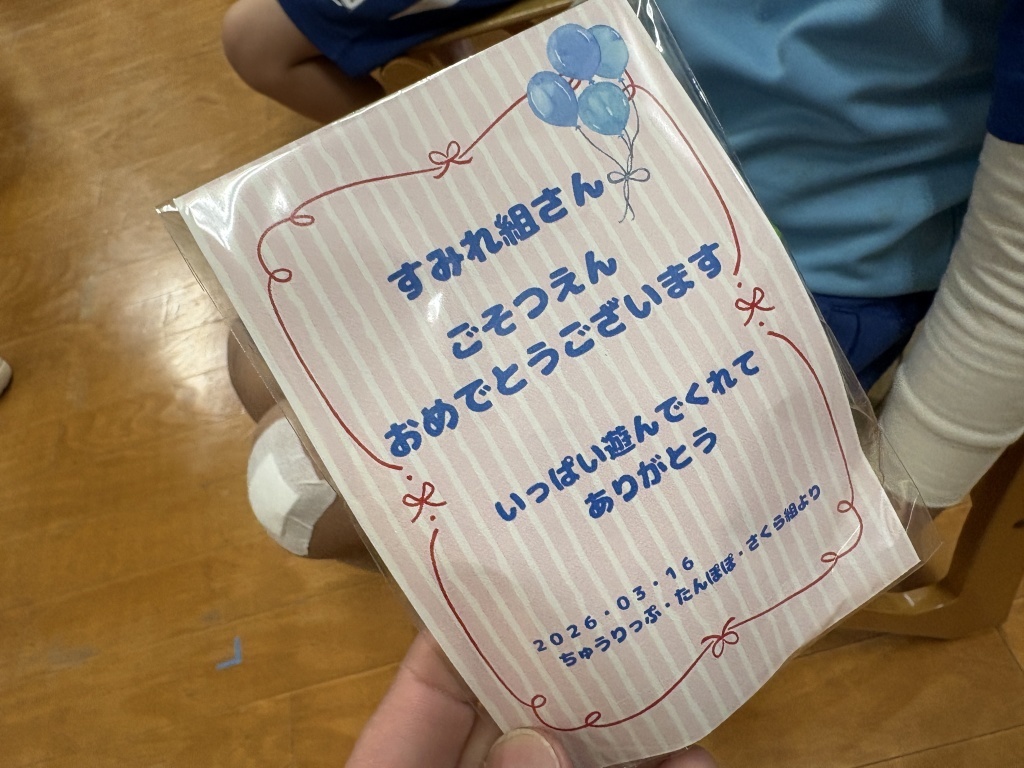 すみれ組さん
ごそつえん
おめでとうございます
いっぱい遊んでくれて
ありがとう
2026・03・16
ちゅうりっぷ・たんぽぽ・さくら組より